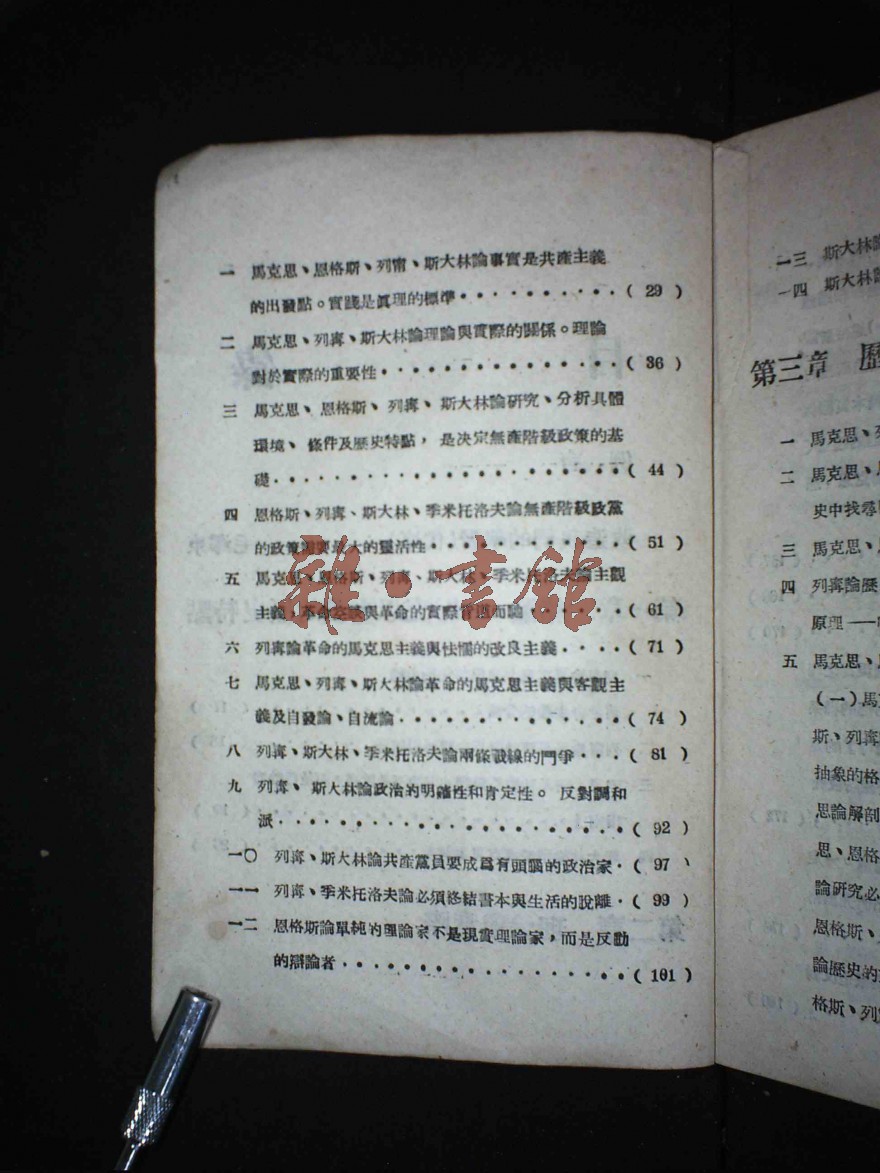 一 馬克思、恩格斯、列甯、斯大林論事實是共產主義
的出發點。實踐是眞理的標準··········( 29 )
二 馬克思、列寗、斯大林論理論與實際的關係。理論
對於實際的重要性···············( 36 )
三 馬克思、恩格斯、列寗、斯大林論研究、分析具體
環境、條件及歷史特點，是决定無產階級政策的基
礎·······················( 44 )
四 恩格斯、列寗、斯大林、季米托洛夫論無產階級政黨
的政策需要最大的靈活性············( 51 )
五 馬克思、恩格斯、列寗、斯大林、季米托洛夫論主觀
主義，革命空談與革命的實際背道而馳······( 61 )
六 列寗論革命的馬克思主義與怯懦的改良主義····( 71 )
七 馬克思、列寗、斯大林論革命的馬克思主義與客觀主
義及自發論、自流論··············( 74 )
八 列寗、斯大林、季米托洛夫論兩條戰線的鬥爭···( 81 )
九 列寗、斯大林論政治的明確性和肯定性。反對調和
派······················( 92 )
一〇 列寗、斯大林論共產黨員要成爲有頭腦的政治家·( 97 )
一一 列寗、季米托洛夫論必須終結書本與生活的脫離·( 99 )
一二 恩格斯論單純的理論家不是現實理論家，而是反動
的辯論者··················( 101 )
雜·書館
一三 斯大林論
一四 斯大林論
第三章 歷
一 馬克思、列
二 馬克思、
史中找尋
三 馬克思、
四 列寗論歷
原理——
五 馬克思、
（一）馬
斯、列寗
抽象的格
思論解剖
思、恩格
論研究必
恩格斯、
論歷史的
格斯、列